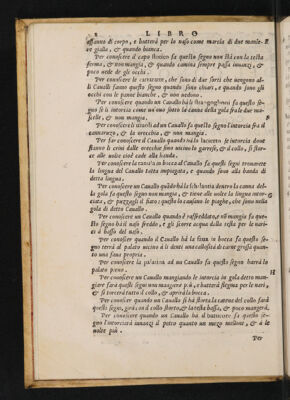 8 LIBRO
affanno di corpo, e butterà per lo naso come marcia di due maniere
gialla, & quando bianca.
Per conoscere il capo fa questo segno non stà con la testa
ferma, & non mangia, & quando camina sempre passa innanzi, &
poco vede de gli occhi.
Per conoscere le cattaratte, che sono di due sorti che vengono alli
Cavalli fanno questo segno quando sono chiari, e quando sono gli
occhi con le panne bianche, & non vedono.
Per conoscere quando un Cavallo hà li fa questo segno
se li intorcia come un sotto la canna della gola frà le due
& non mangia.
Per conoscere li vivoli ad un Cavallo fa questo segno l'intorcia frà il
cannaruzzo, & la orecchia, & non mangia.
Per far conoscere il Cavallo quando hà lo se intorcia dove
stanno le crini dalle orecchie sino vicino lo garrese, & il collo, si storce
alle volte cioè cade alla banda.
Per conoscere la in bocca al Cavallo fa questi segni troverete
la lingua del Cavallo tutta impiagata, e quando sana alla banda di
detta lingua.
Per conoscere un Cavallo quando hà la dentro la canna della
gola fa questo segno non mangia, & tiene alle volte la lingua
& puzzagli il fiato: questo lo causano le paglie, che sono nella
gola di detto Cavallo.
Per conoscere un Cavallo quando è raffreddato, e non mangia fa questo
segno hà il naso freddo, e gli scorre acqua dalla testa per le nari
à basso del naso.
Per conoscere quando il Cavallo hà la in bocca fa questo segno
terrà al palato vicino à li denti una di carne grossa quanto
una fava propria.
Per conoscere la palatina ad un Cavallo fa questo segno harrà lo
palato pieno.
Per conoscere un Cavallo mangiando le intorcia in gola detto mangiare
farà questi segni non mangiare più, e butterà flegma per le nari,
& si torcerà tutto il collo, & aprirà la bocca.
Per conoscere quando un Cavallo si hà storto la canna del collo farà
questi segni, girà con il collo storto, & la testa bassa, & poco mangerà.
Per conoscere quando un Cavallo hà il fa questo segno
l'intorciarà innanzi il petto quanto un mezzo mellone, & à le
volte più.
Per